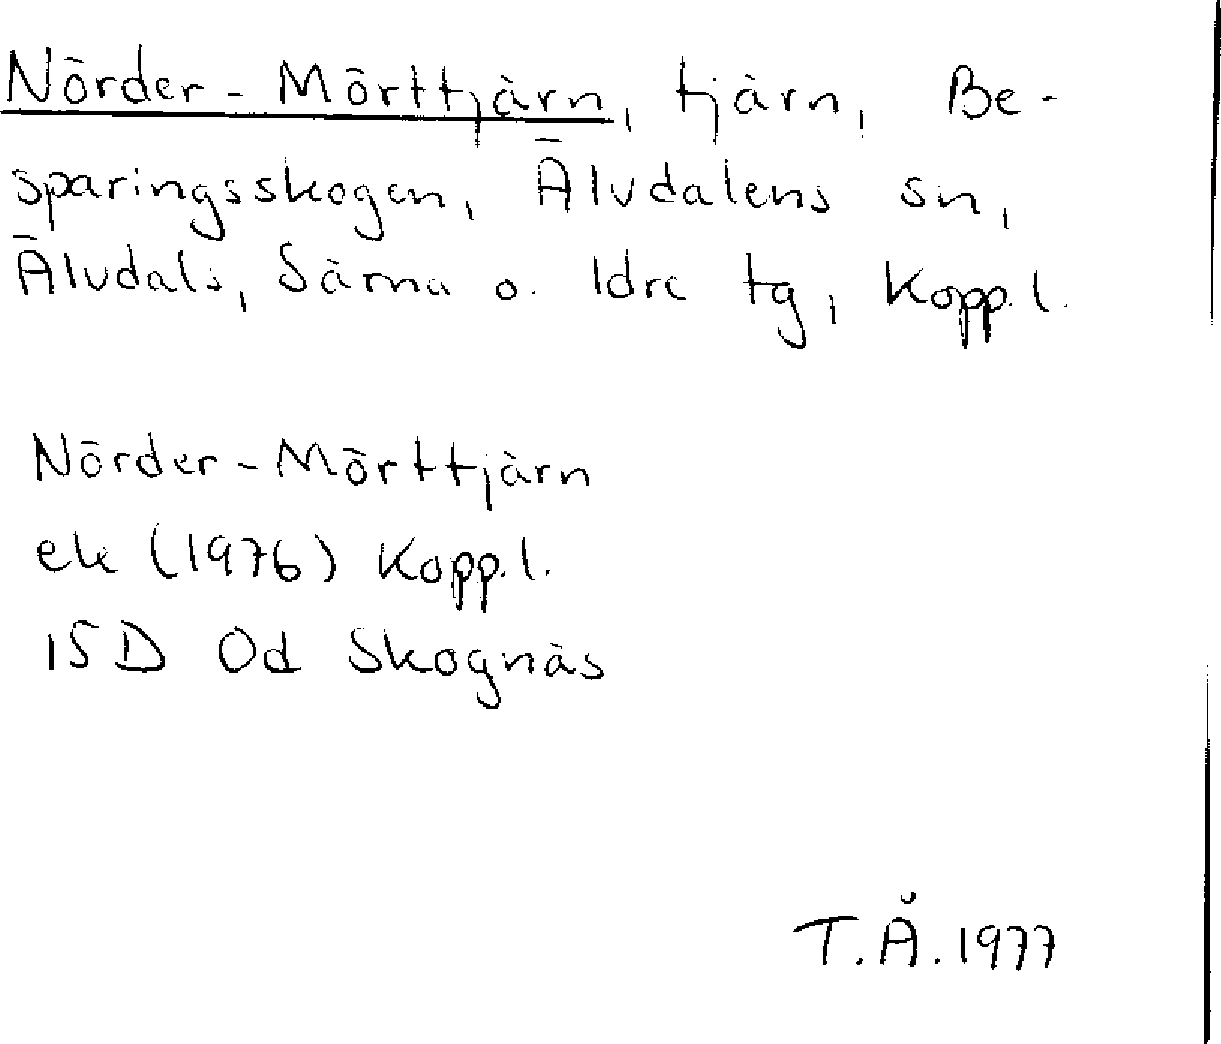 Nörder-Mörttjärn, tjärn, Be-
sparingsskogen, Älvdalens sn,
Älvdals, Särna o. Idre tg, Kopp.l.
Nörder-Mörttjärn
ek (1976) Kopp.l.
15D 0d Skognäs
T.Å.1977